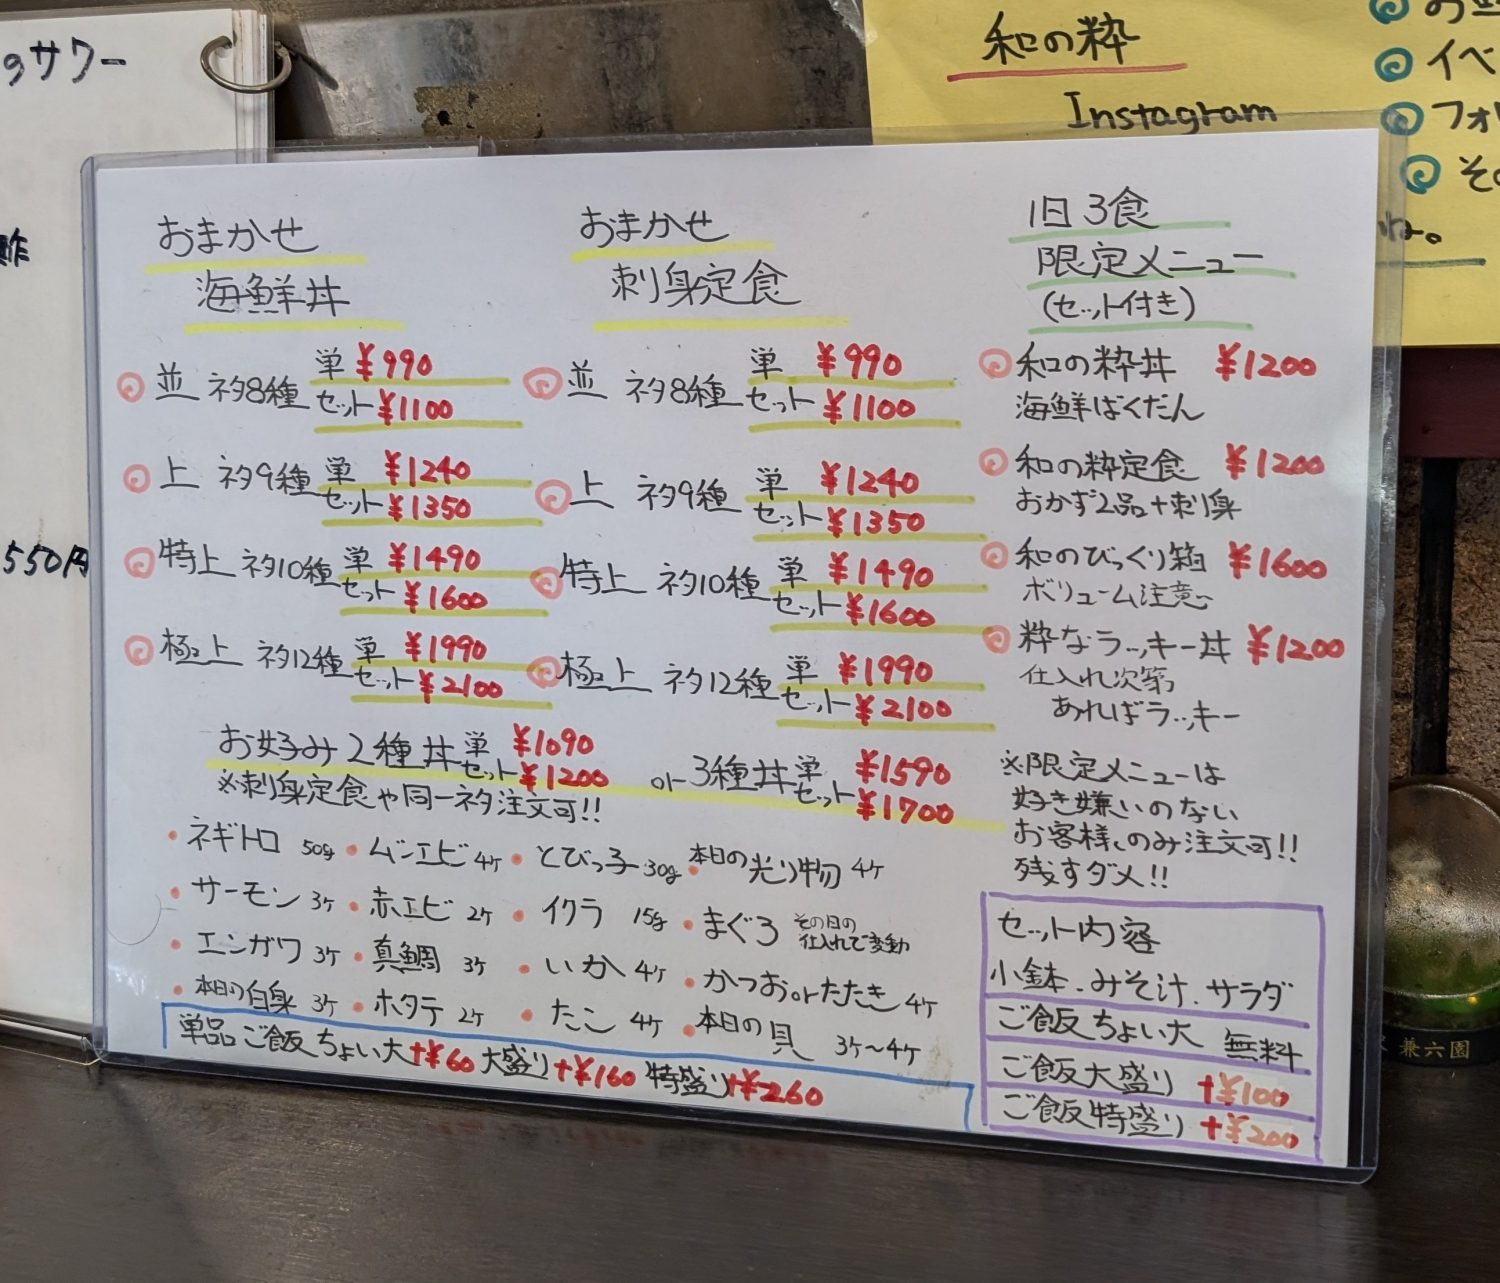 のサワー
酢
550円
和の粋
Instagram
イベ
フォ
その
おまかせ
海鮮丼
並 ネタ8種 単 ¥990
セット ¥1100
上 ネタ9種 単 ¥1240
セット ¥1350
特上 ネタ10種 単 ¥1490
セット ¥1600
極上 ネタ12種 単 ¥1990
セット ¥2100
おまかせ
刺身定食
並 ネタ8種 単 ¥990
セット ¥1100
上 ネタ9種 単 ¥1240
セット ¥1350
特上 ネタ10種 単 ¥1490
セット ¥1600
極上 ネタ12種 単 ¥1990
セット ¥2100
お好み2種丼 単 ¥1090
セット ¥1200
or 3種丼 単 ¥1590
セット ¥1700
※刺身定食や同一ネタ注文可!!
・ネギトロ 50g ・ムキエビ 4ケ ・とびっ子 30g ・本日の光り物 4ケ
・サーモン 3ケ ・赤エビ 2ケ ・イクラ 15g ・まぐろ その日の
仕入れで変動
・エンガワ 3ケ ・真鯛 3ケ ・いか 4ケ ・かつおorたたき 4ケ
・本日の白身 3ケ ・ホタテ 2ケ ・たこ 4ケ ・本日の貝 3ケ〜4ケ
単品ご飯ちょい大+¥60 大盛り+¥160 特盛り+¥260
1日3食
限定メニュー
(セット付き)
和の粋丼 ¥1200
海鮮ばくだん
和の粋定食 ¥1200
おかず2品+刺身
和のびっくり箱 ¥1600
ボリューム注意〜
粋なラッキー丼 ¥1200
仕入れ次第
あればラッキー
※限定メニューは
好き嫌いのない
お客様のみ注文可!!
残すダメ!!
セット内容
小鉢.みそ汁.サラダ
ご飯ちょい大 無料
ご飯大盛り +¥100
ご飯特盛り +¥200
兼六園